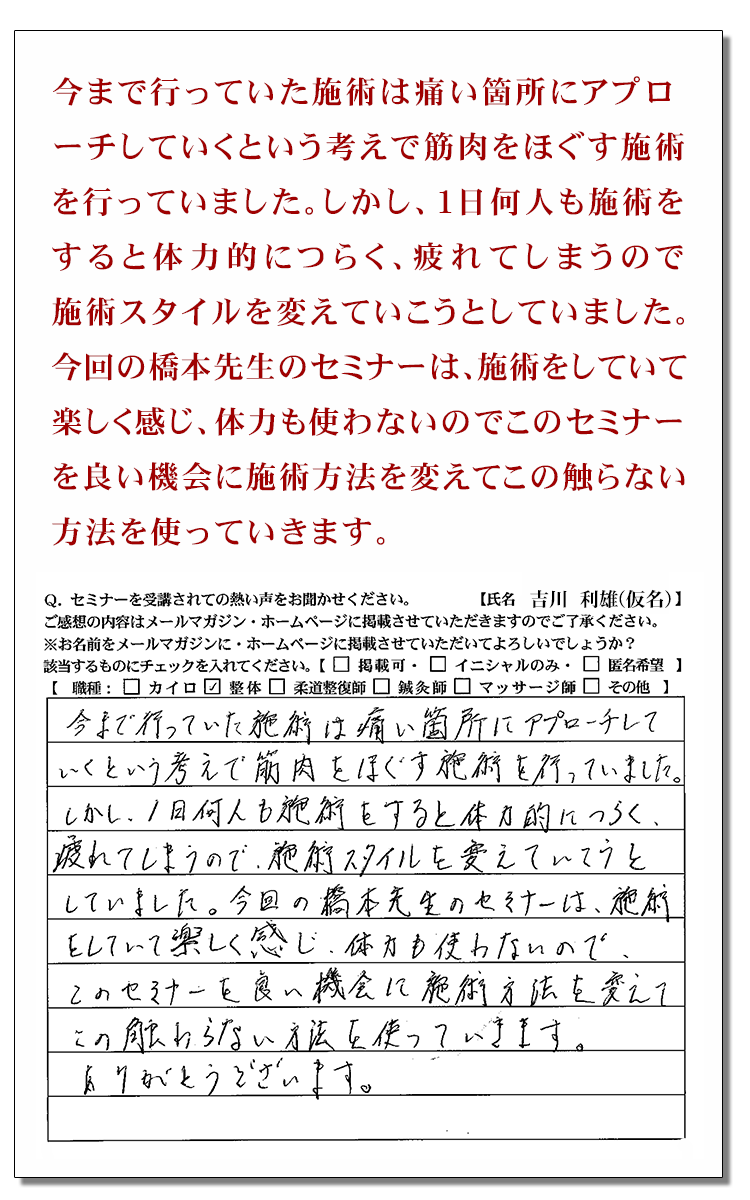 今まで行っていた施術は痛い箇所にアプロ
ーチしていくという考えで筋肉をほぐす施術
を行っていました。しかし、1日何人も施術を
すると体力的につらく、疲れてしまうので
施術スタイルを変えていこうとしていました。
今回の橋本先生のセミナーは、施術をしていて
楽しく感じ、体力も使わないのでこのセミナー
を良い機会に施術方法を変えてこの触らない
方法を使っていきます。
Q. セミナーを受講されての熱い声をお聞かせください。 【氏名 吉川 利雄(仮名)】
ご感想の内容はメールマガジン・ホームページに掲載させていただきますのでご了承ください。
※お名前をメールマガジンに・ホームページに掲載させていただいてよろしいでしょうか？
該当するものにチェックを入れてください。【 □ 掲載可・ □ イニシャルのみ・ □ 匿名希望 】
【 職種： □ カイロ ☑ 整体 □ 柔道整復師 □ 鍼灸師 □ マッサージ師 □ その他 】
今まで行っていた施術は痛い箇所にアプローチして
いくという考えで筋肉をほぐす施術を行っていました。
しかし、1日何人も施術をすると体力的につらく、
疲れてしまうので、施術スタイルを変えていこうと
していました。今回の橋本先生のセミナーは、施術
をしていて楽しく感じ、体力も使わないので、
このセミナーを良い機会に施術方法を変えて
この触わらない方法を使っていきます。
ありがとうございます。